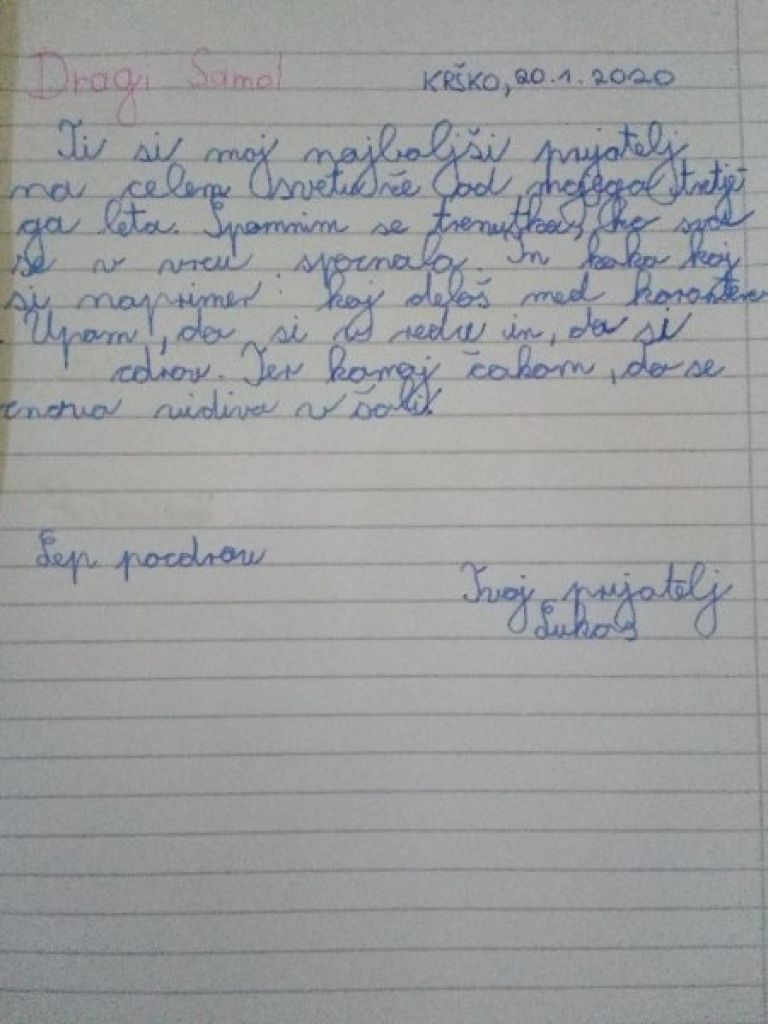 Dragi Samo!
KRŠKO, 20.1.2020
Ti si moj najboljši prijatelj
na celem svetu že od mojega tretje
ga leta. Spomnim se trenutka, ko sva
se v vrcu spoznala. In kaka kaj
si naprimer: kaj delaš med karanteno
Upam, da si v redu in, da si
zdrav. Ter komaj čakam, da se
znova vidiva v šoli.
Lep pozdrav
Tvoj prijatelj
Lukas